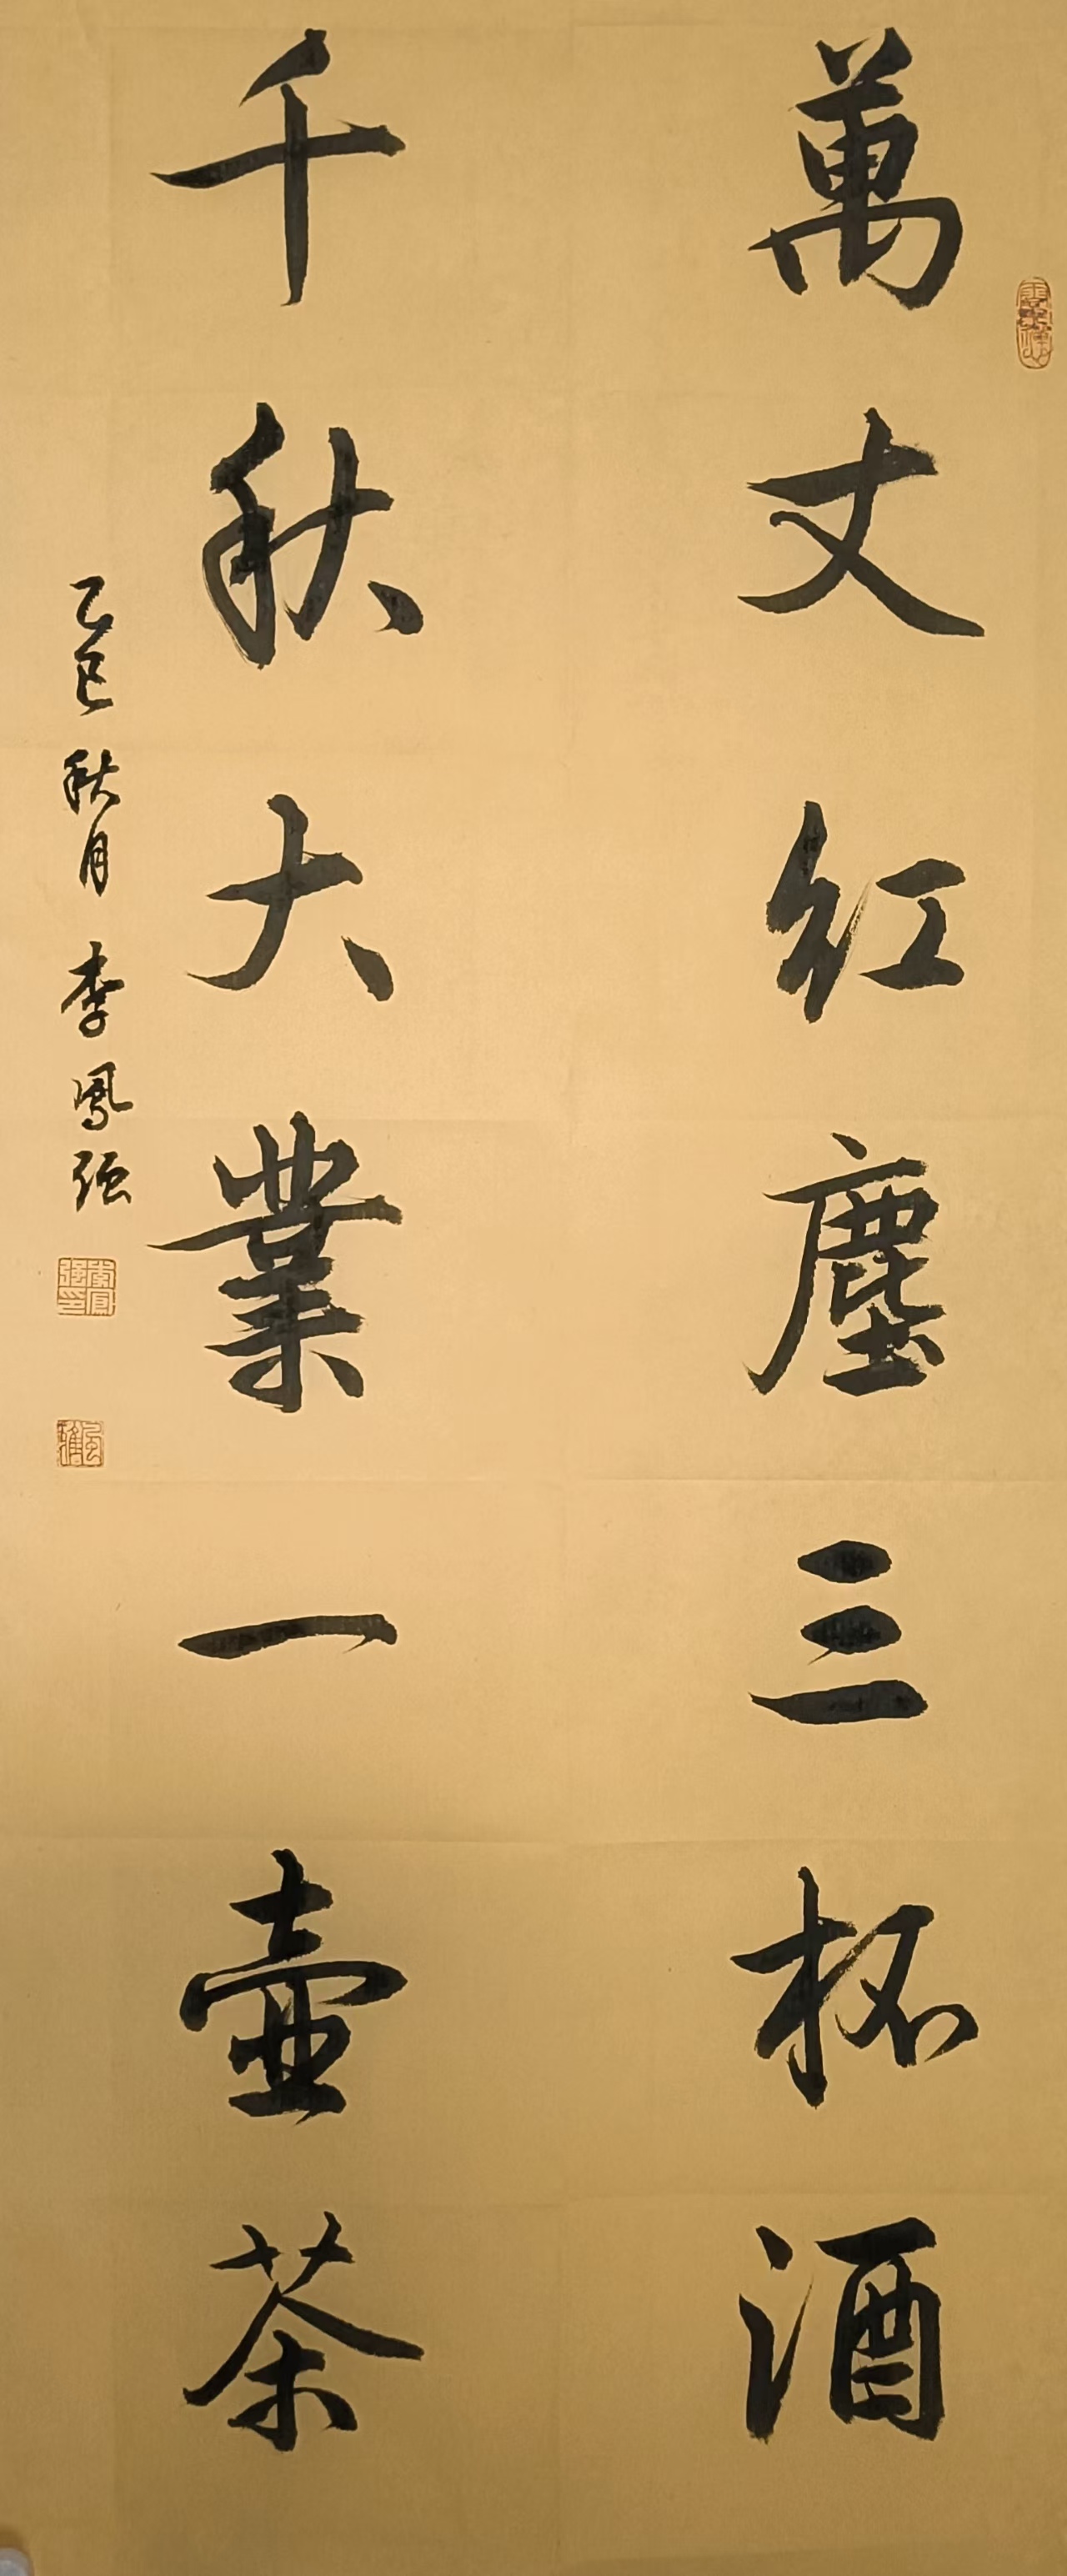 萬丈紅塵三杯酒
千秋大業一壺茶
乙巳秋月李鳳強
李鳳強印